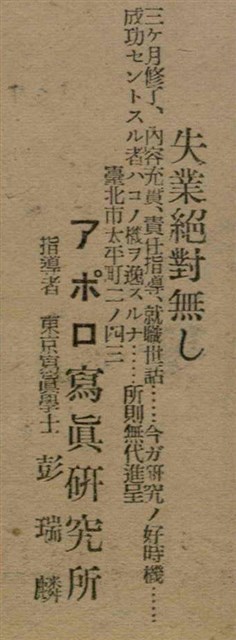 失業絕對無し
三ケ月修了、內容充實、責任指導、就職世話……今ガ硏究ノ好時機……
成功セントスル者ハコノ機ヲ逸スルナ……所則無代進呈
臺北市太平町二ノ四三
アポロ寫眞硏究所
指導者 東京寫眞學士 彭瑞麟